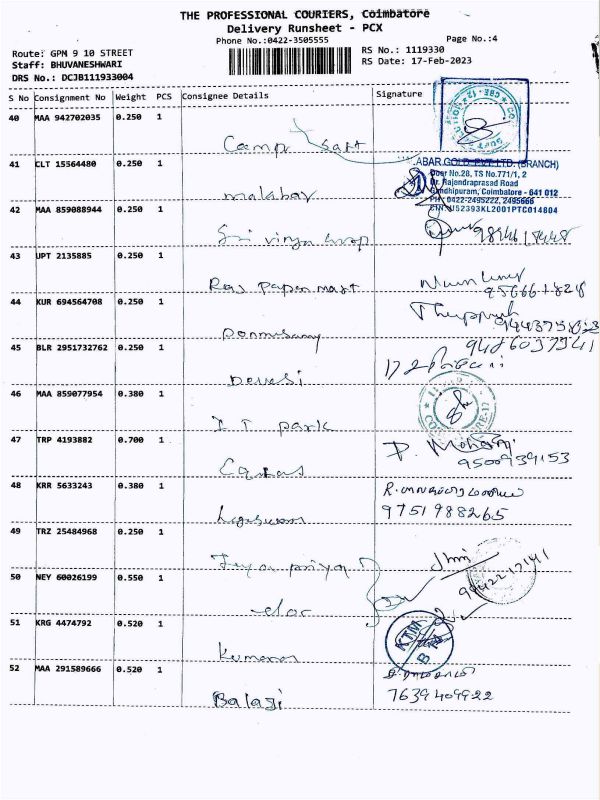 THE PROFESSIONAL COURIERS, Coimbatore
Delivery Runsheet - PCX
Phone No.:0422-3505555
Page No.:4
Route: GPN 9 10 STREET
RS No.: 1119330
Staff: BHUVANESHWARI
RS Date: 17-Feb-2023
DRS No.: DCJB111933004
S No Consignment No Weight PCS Consignee Details Signature
40 MAA 942702035 0.250 1
Camp Satt
41 CLT 15564480 0.250 1
ABAR GOLD PVT.LTD. (BRANCH)
Door No.28, TS No.771/1, 2
Dr. Rajendraprasad Road
Gandhipuram, Coimbatore - 641 012
PH: 0422-2495222, 2495666
CIN:U52393KL2001PTC014804
malabar
42 MAA 859088944 0.250 1
Sri
43 UPT 2135885 0.250 1
Raj Paper mart
44 KUR 694564708 0.250 1
Ponnusamy
45 BLR 2951732762 0.250 1
9486037541
Devesi
46 MAA 859077954 0.380 1
I T park
47 TRP 4193882 0.700 1
P. Mohan
9500939153
48 KRR 5633243 0.380 1
9751988265
49 TRZ 25484968 0.250 1
priya
50 NEY 60026199 0.550 1
51 KRG 4474792 0.520 1
KTM
Kumaran
52 MAA 291589666 0.520 1
7639409922
Balaji